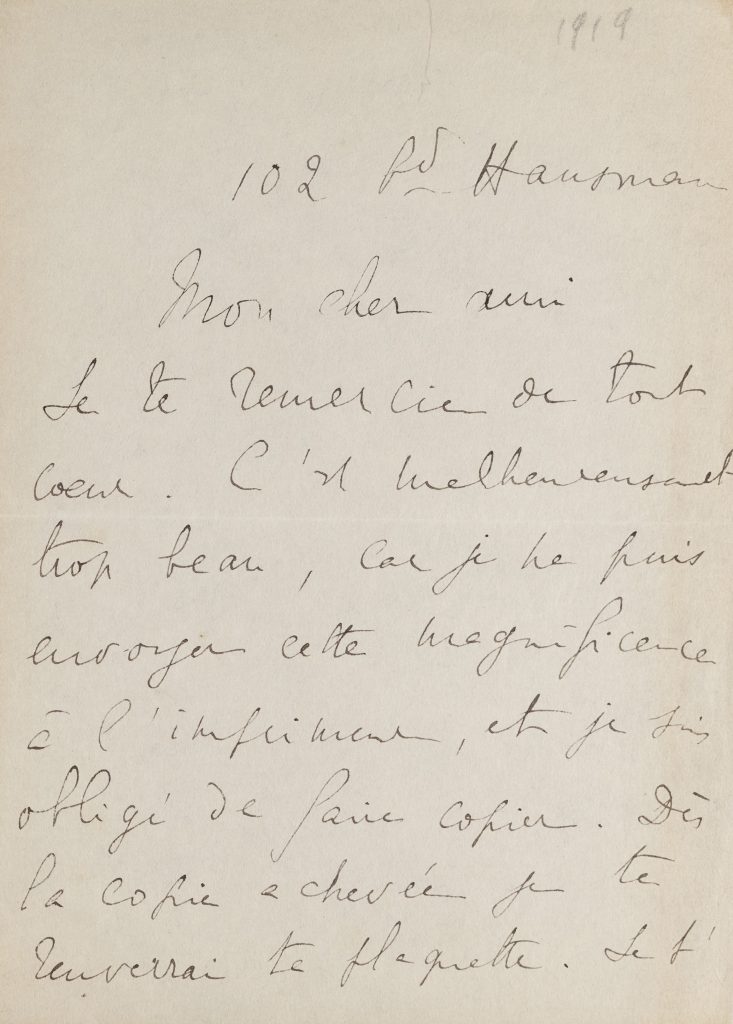 1919
102 bd Hausman
Mon cher ami
Je te remercie de tout
coeur. C'est malheureusement
trop beau, car je ne puis
envoyer cette magnificence
à l'imprimeur, et je suis
obligé de faire copier. Dès
la copie achevée je te
renverrai ta plaquette. Je t'